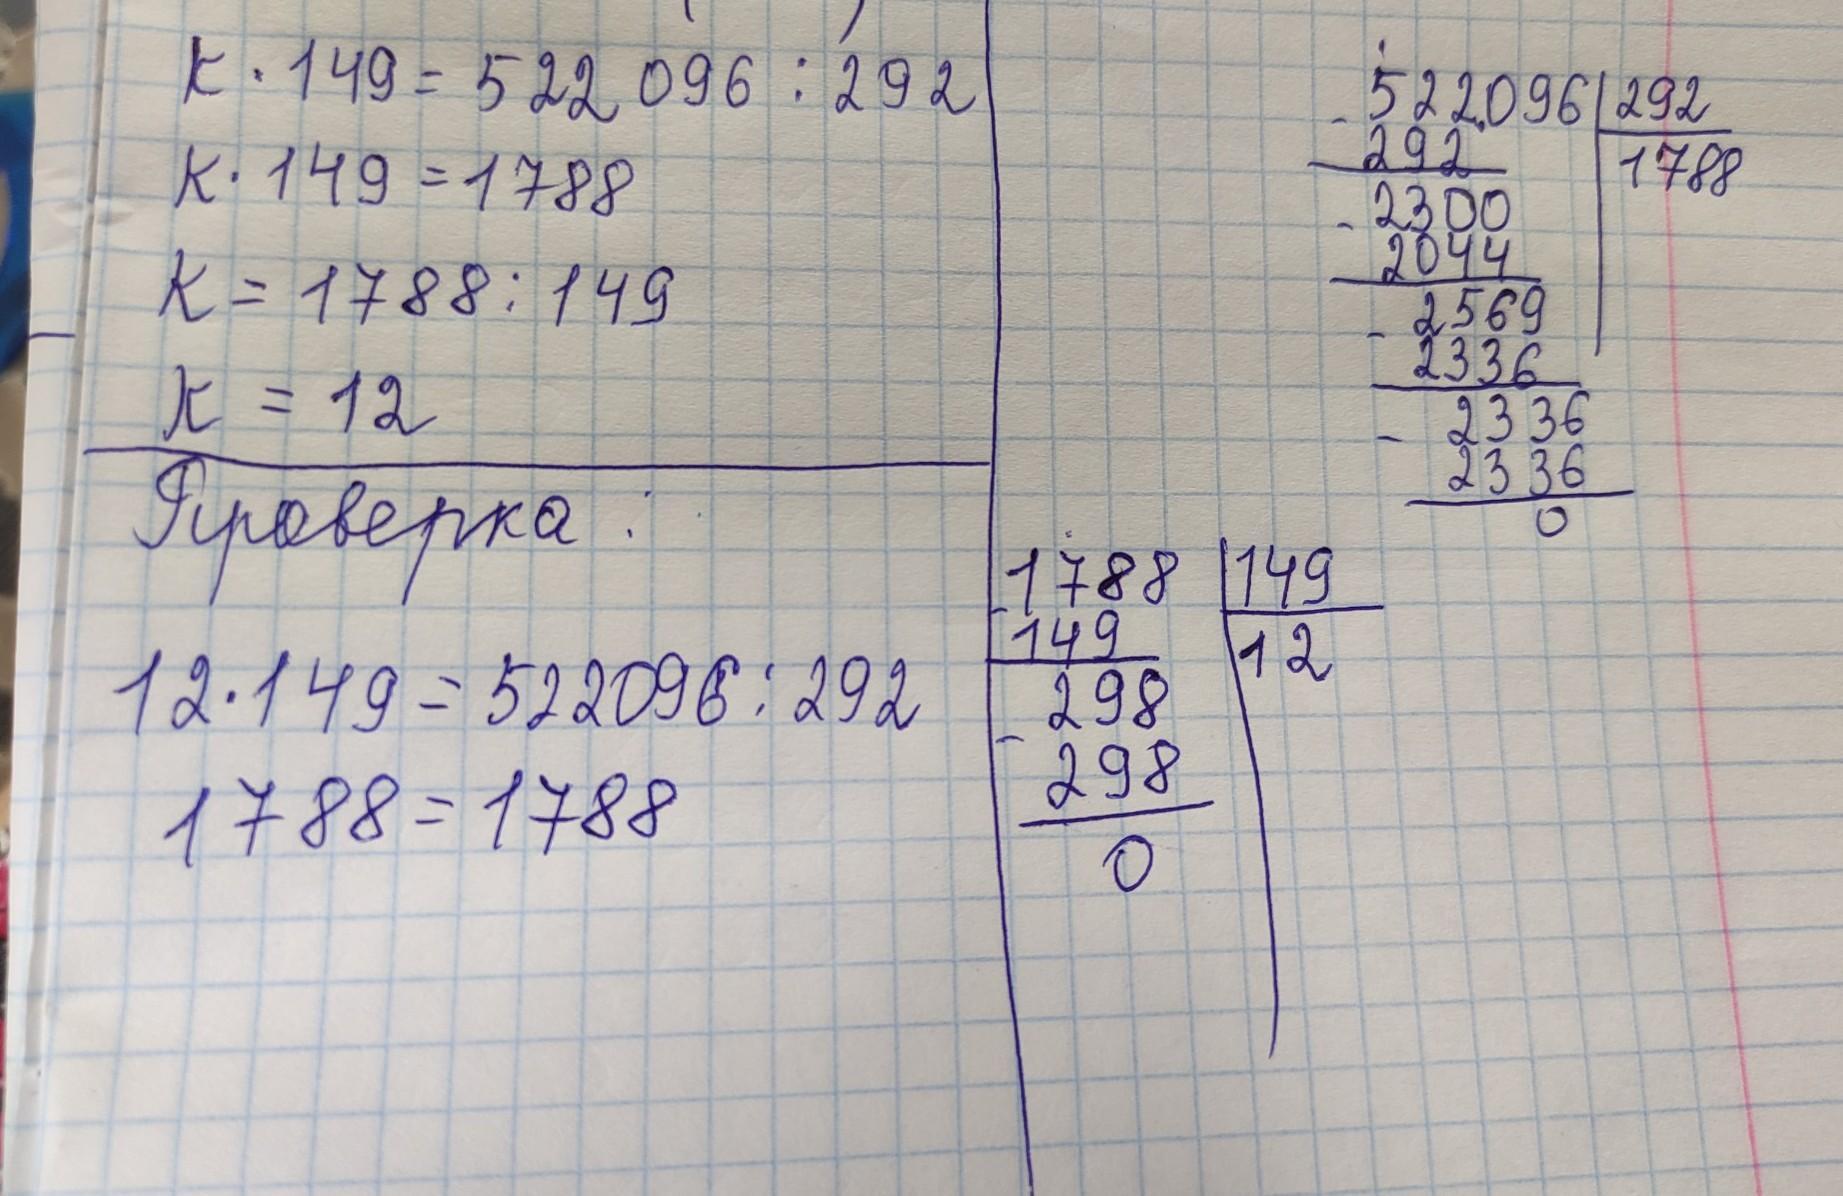 К · 149 = 522 096 : 292
К · 149 = 1788
К = 1788 : 149
К = 12
Проверка :
12 · 149 = 522096 : 292
1788 = 1788
522096 | 292
- 292
1788
2300
- 2044
2569
- 2336
2336
- 2336
0
1788 | 149
- 149
12
298
- 298
0